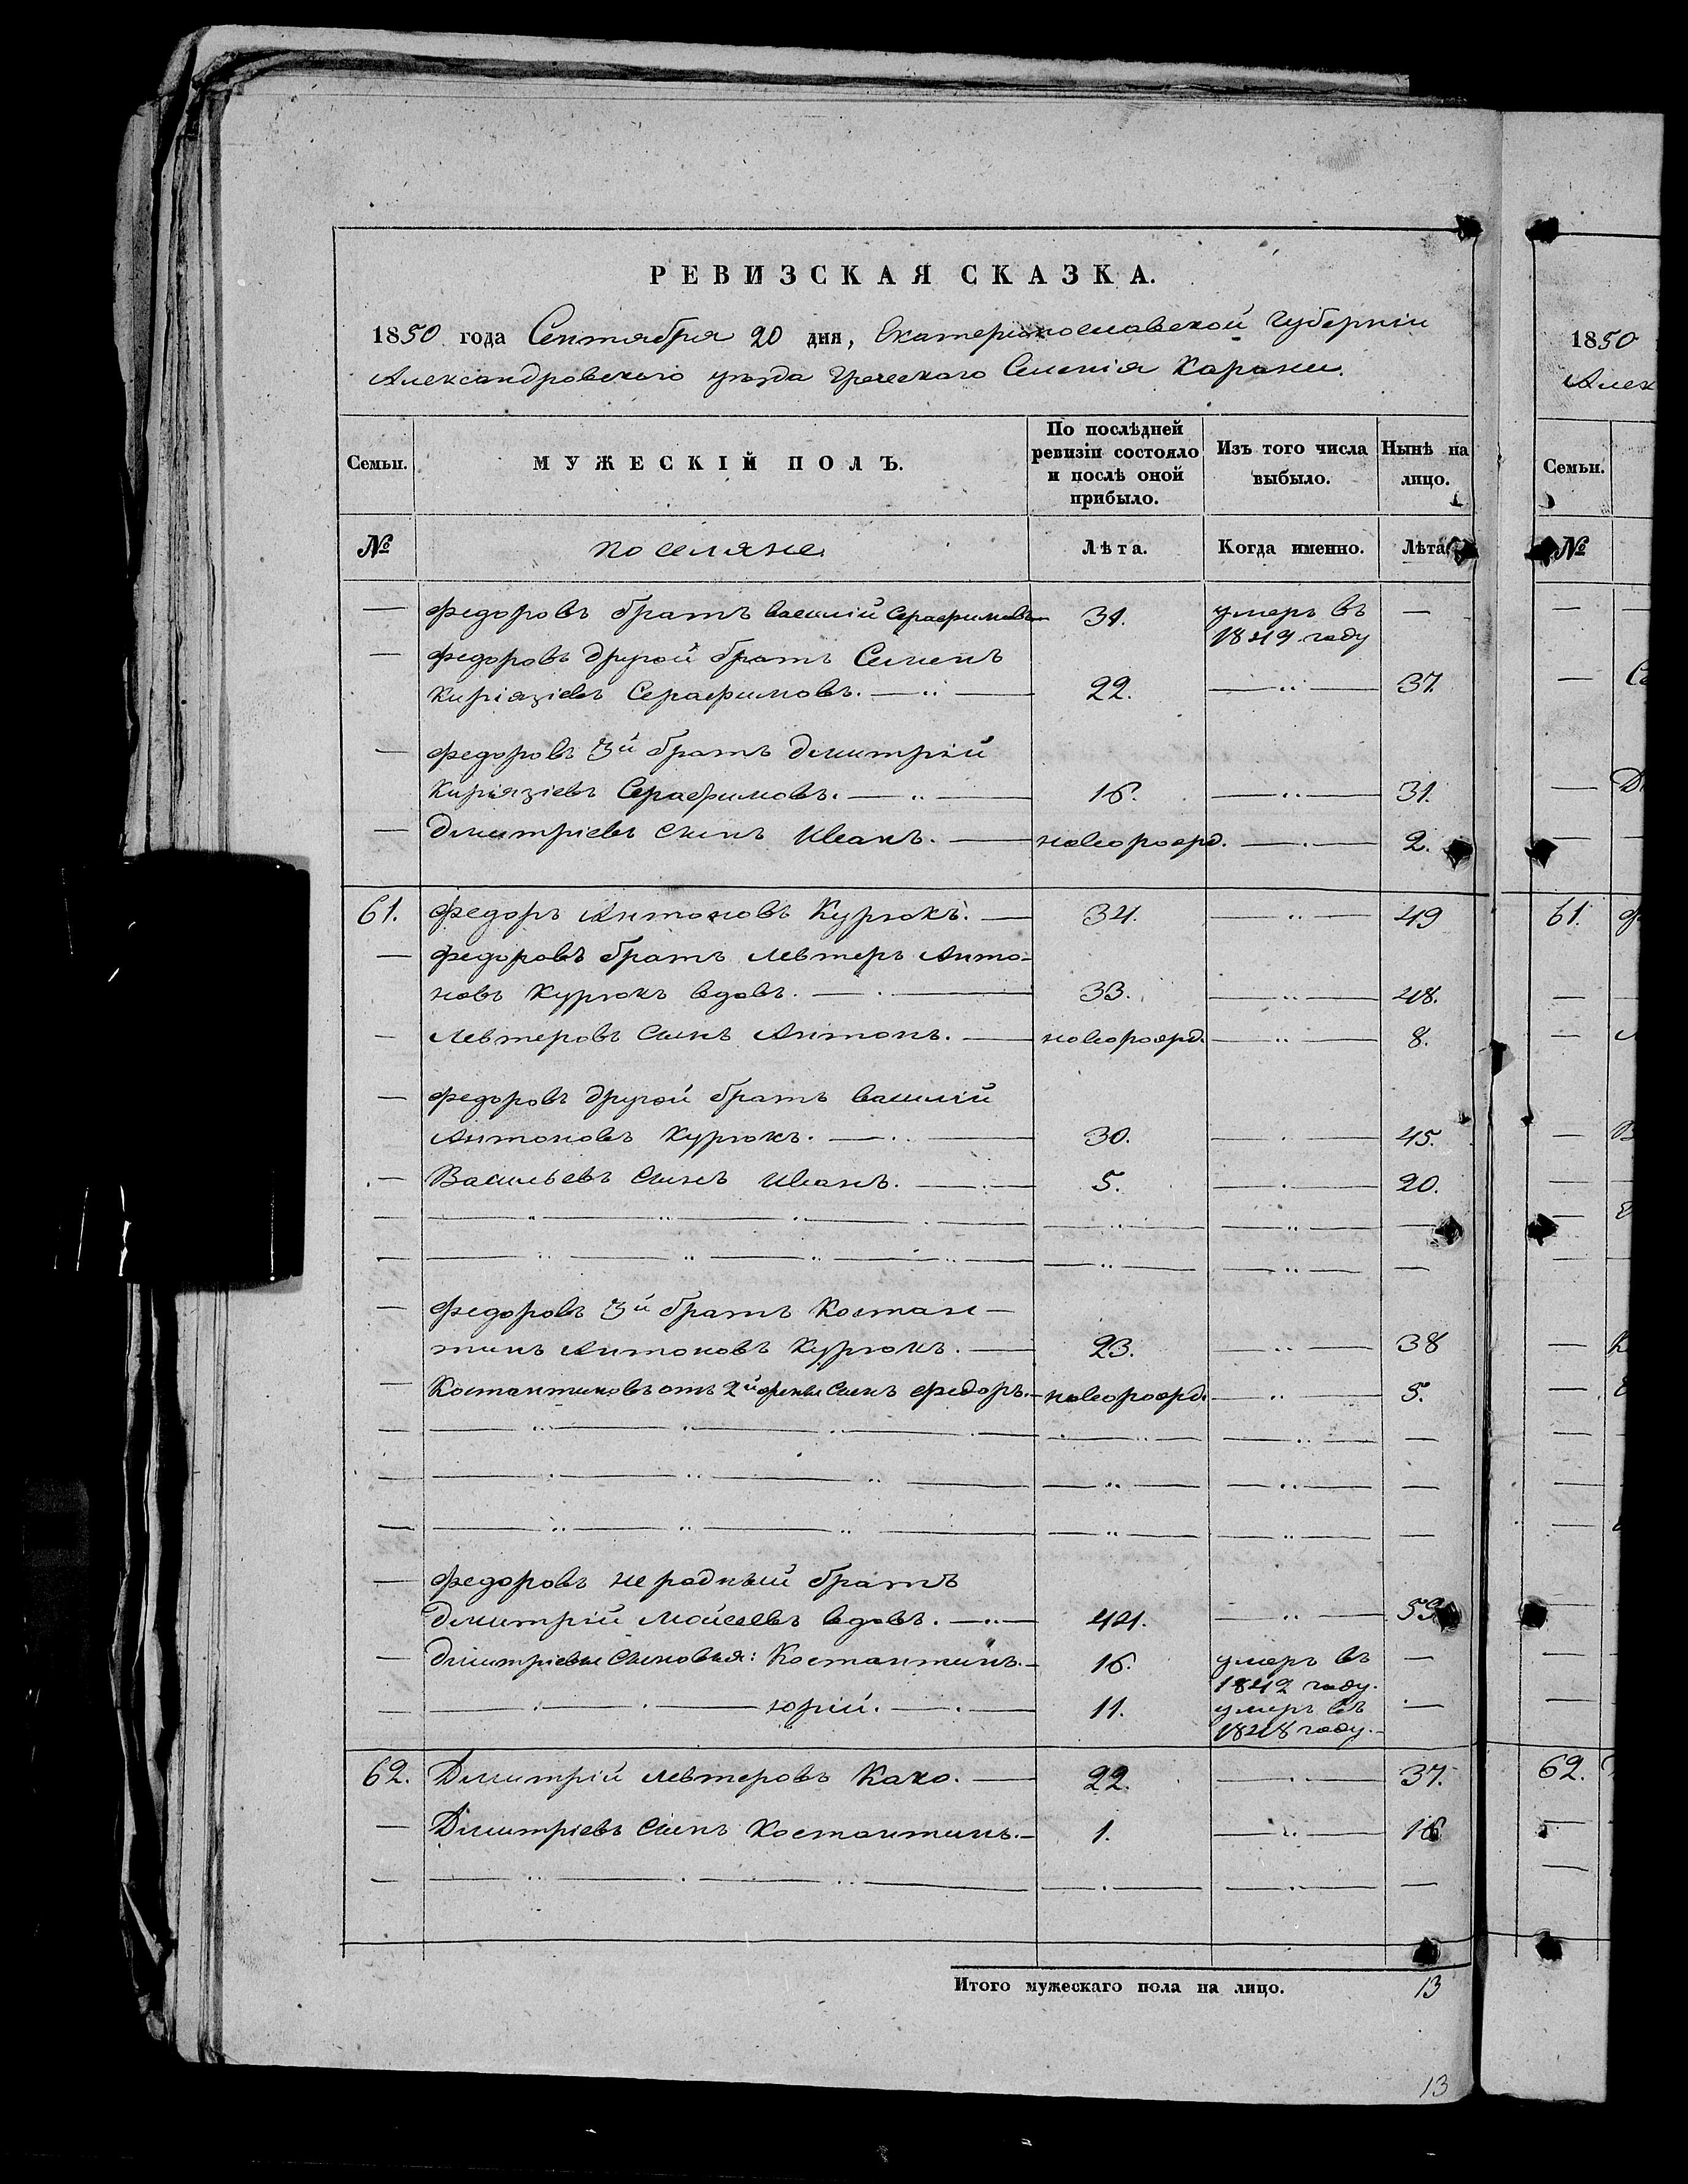 РЕВИЗСКАЯ СКАЗКА.
1850 года Сентября 20 дня, Екатеринославской Губерніи
Александровского уезда Греческого Селенія Карани.
Семьи.
МУЖЕСКІЙ ПОЛЪ.
По послѣдней ревизіи состояло и послѣ оной прибыло.
Изъ того числа выбыло.
Нынѣ на лицо.
№ поселяне Лѣта. Когда именно. Лѣта
— Федоровъ братъ Василій Серафимовъ — 31. умеръ въ —
1849 году
— Федоровъ другой братъ Семенъ
Киріязіевъ Серафимовъ. — 22. — 37.
— Федоровъ 3й братъ Дмитрій
Киріязіевъ Серафимовъ. — 16. — 31.
— Дмитріевъ сынъ Иванъ. — новорожд. — 2.
61. Федоръ Антоновъ Курюкъ. — 34. — 49
— Федоровъ братъ Левтеръ Анто-
новъ Курюкъ вдовъ. — 33. — 48.
— Левтеровъ сынъ Антонъ. — новорожд. — 8.
— Федоровъ другой братъ Василій
Антоновъ Курюкъ. — 30. — 45.
— Васильевъ сынъ Иванъ. — 5. — 20.
— Федоровъ 3й братъ Костан-
тинъ Антоновъ Курюкъ. — 23. — 38
— Костантиновъ отъ 2й жены сынъ Федоръ. — новорожд. — 5.
— Федоровъ неродный братъ
Дмитрій Моисеевъ вдовъ. — 44. — 59
— Дмитріевы сыновья: Костантинъ. — 16. умеръ въ —
1842 году.
— Юрій. — 11. умеръ въ —
1848 году.
62. Дмитрій Левтеровъ Како. — 22. — 37.
— Дмитріевъ сынъ Костантинъ. — 1. — 16
Итого мужескаго пола на лицо. 13
13
1850
Алек
Семьи.
№
61.
62.